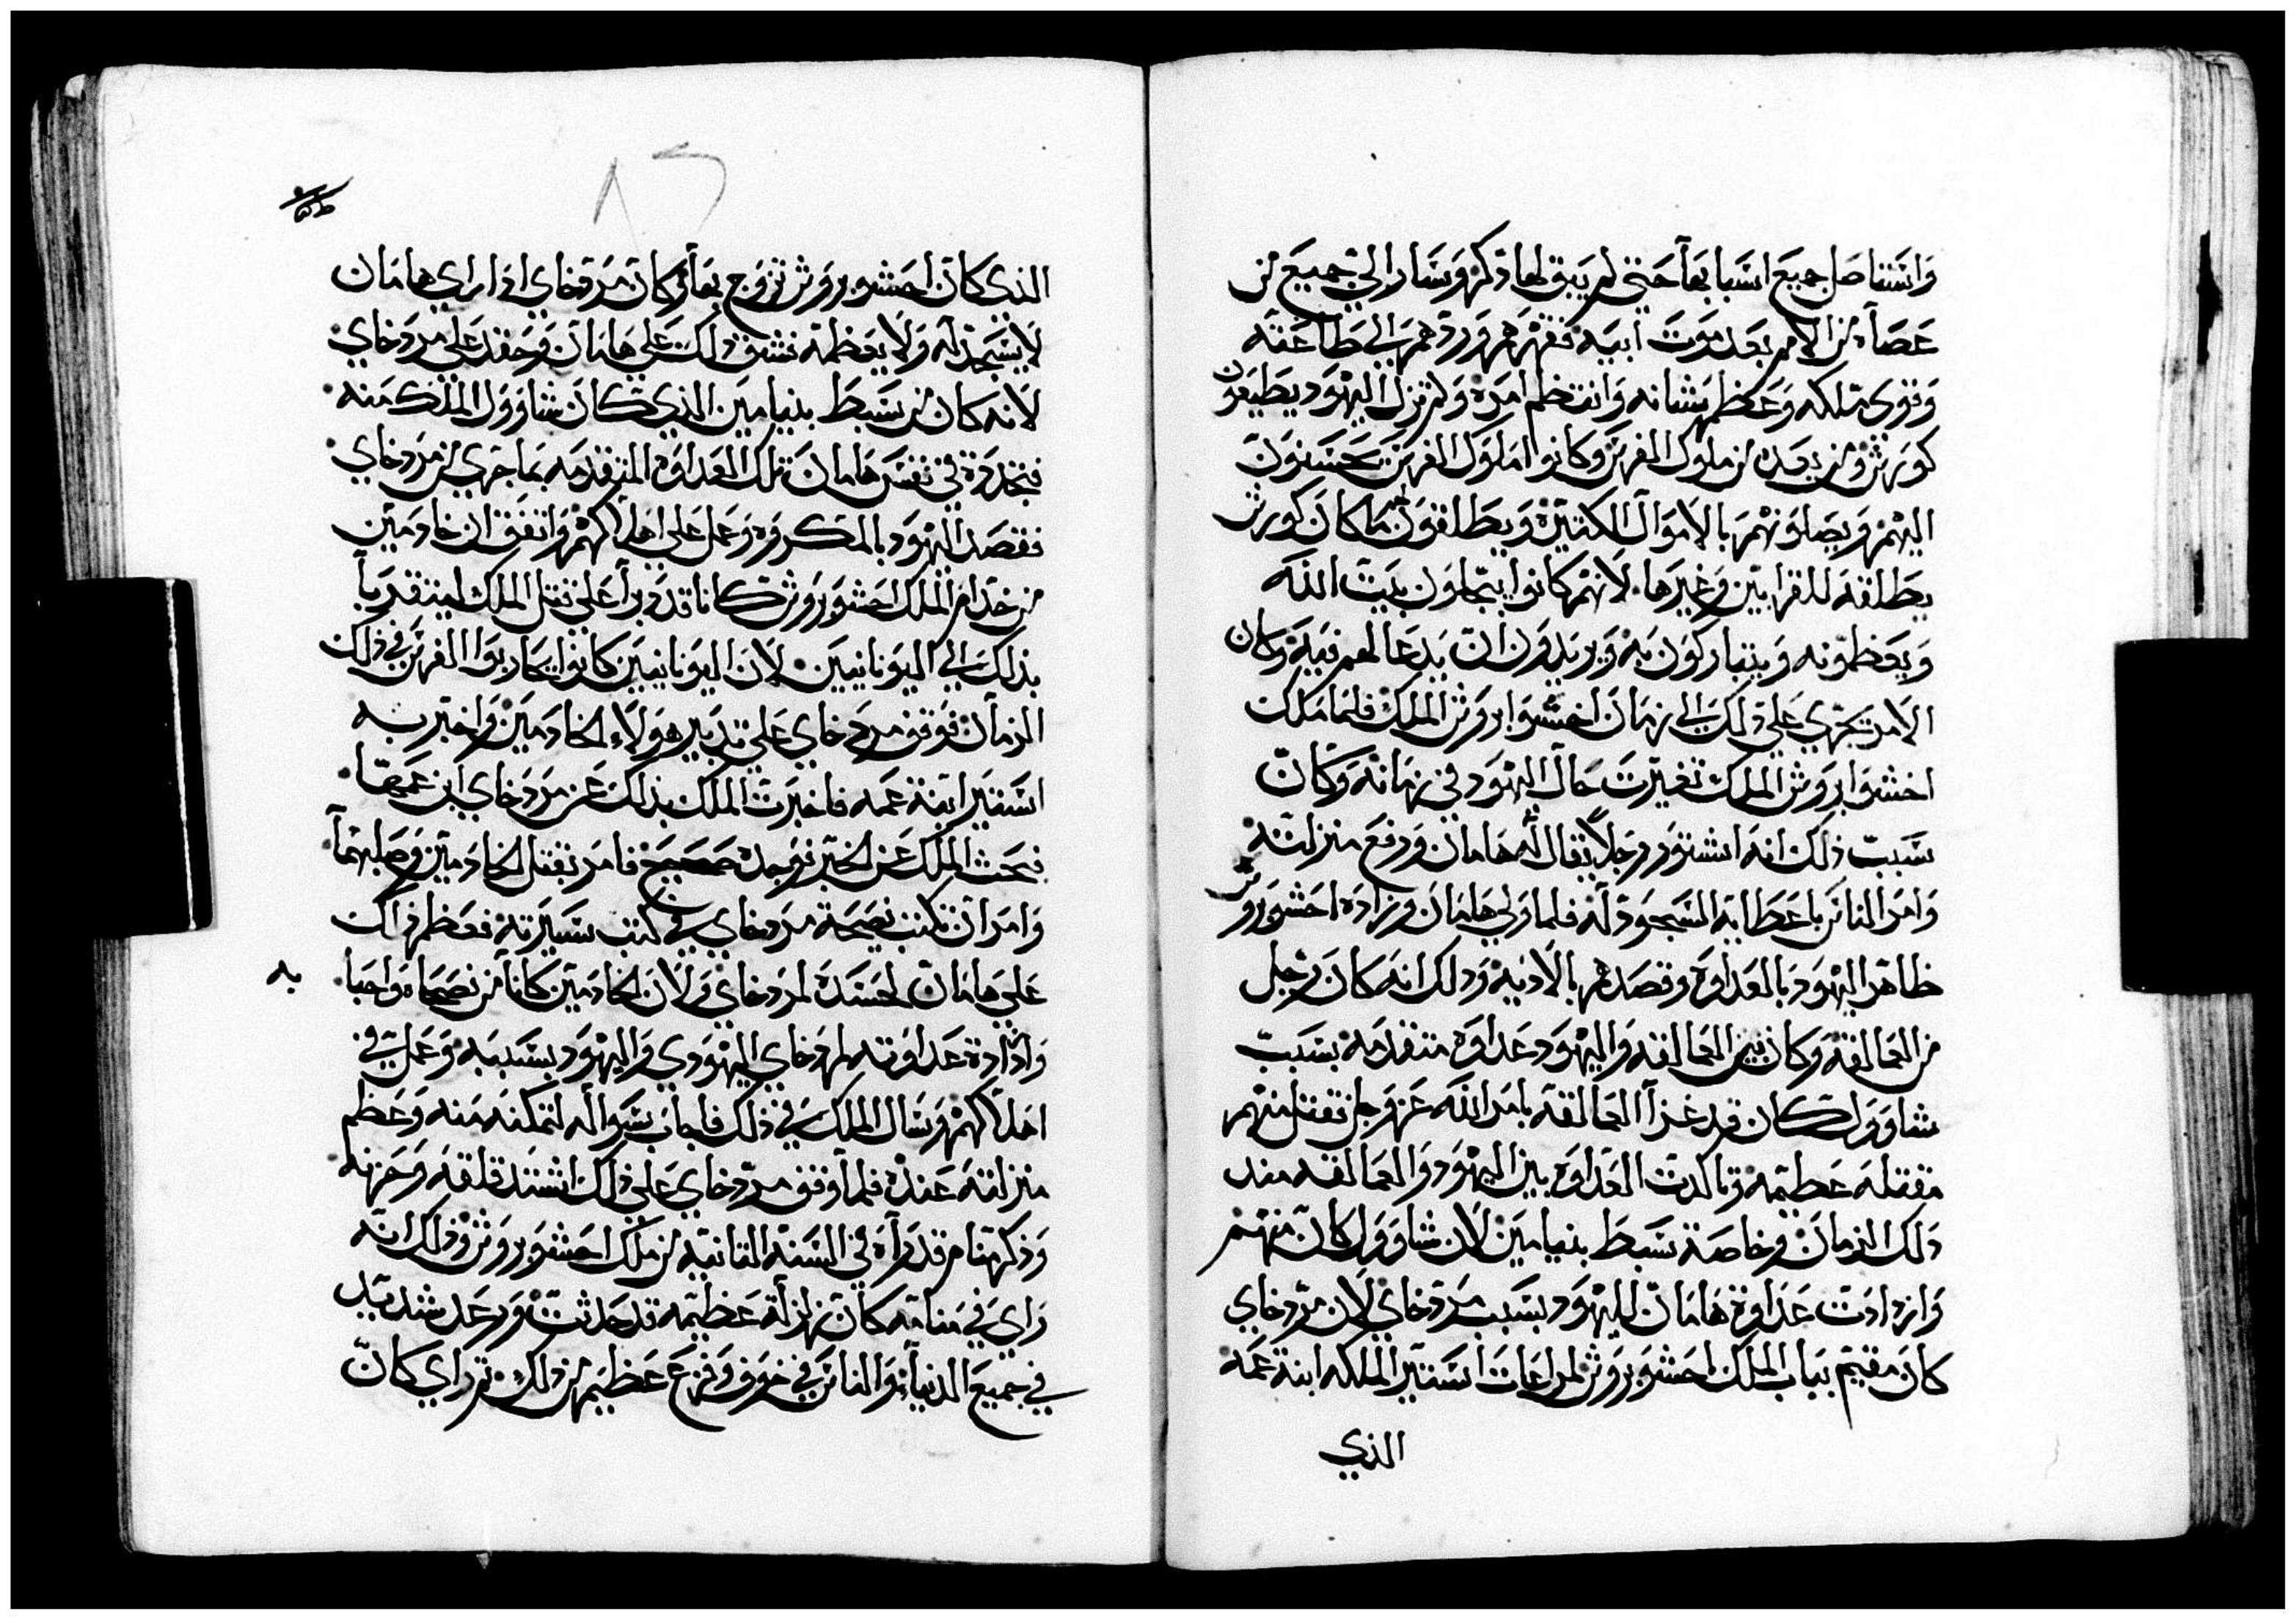 واستناصل جميع اسبابها حتي لم يبق لها ذكر وسار الي جميع من
عصاه من الامم بعد موت ابيه فقهرهم وردهم الي طاعته
وقوى ملكه وعظم شانه وانتظم امره ولم تزل اليهود يطيعون
كورش ومن بعده من ملوك الفرس وكانوا ملوك الفرس يحسنون
اليهم ويصلونهم بالاموال الكثيرة ويطلقون لهم ما كان كورش
يطلقه للقرابين وغيرها. لانهم كانوا يبجلون بيت الله
ويعظمونه ويتباركون به ويريدون ان يدعا لهم فيه وكان
الامر يجري علي ذلك الي زمان اخشوايروش الملك فلما ملك
اخشوايروش الملك تغيرت حال اليهود في زمانه وكان
سبب ذلك انه استوزر رجلا يقال له هامان ورفع منزلته
وامر الناس باعطايه السجود له فلما ولي هامان وزارة احشويروش
ظاهر اليهود بالعداوه وقصدهم بالاديه وذلك انه كان رجل
من العمالقه وكان بين العمالقه واليهود عداوه متقدمه بسبب
شاوول كان قد غزا العمالقه بامر الله عز وجل فقتل منهم
مقتله عظيمه وتاكدت العداوه بين اليهود والعمالقه مند
ذلك الزمان وخاصة سبط بنيامين لان شاوول كان منهم
وازدادت عداوة هامان لليهود بسبب مردخاي لان مردخاي
كان مقيم بباب الملك احشويروش لمراعات استير الملكه ابنة عمه
الذي
٨٢
الذي كان احشويروش تزوج بها وكان مردخاي اذا راي هامان
لا يسجد له ولا يعظمه فشق ذلك علي هامان وحقد علي مردخاي
لانه كان من سبط بنيامين الذي كان شاوول الملك منه
فتجددة في نفس هامان تلك العداوه المتقدمه بما جري من مردخاي
فقصد اليهود بالمكروه وعمل علي اهلاكهم واتفق ان خادمين
من خدام الملك احشويروش كانا قد دبرا علي قتل الملك ليتقربا
بذلك الي اليونانيين. لان اليونانيين كانوا يحاربوا الفرس في ذلك
الزمان فوقف مردخاي علي تدبير هولاء الخادمين واخبر به
استير ابنة عمه فاخبرت الملك بذلك عن مردخاي ابن عمها
فبحث الملك عن الخبر فوجده صحيح فامر بقتل الخادمين وصلبهما
وامر ان تكتب نصيحة مردخاي في كتب سيرته فعظم ذالك
علي هامان لحسده لمردخاي ولان الخادمين كانا من نصحاه واحبا به
وازادة عداوته لمردخاي اليهودي واليهود بسببه وعمل في
اهلاكهم وسال الملك في ذلك فاجاب سواله لتمكنه منه وعظم
منزلته عنده فلما وقف مردخاي علي ذلك اشتد قلقه وحزنه
وذكر منام قد راه في السنة الثانيه من ملك احشويروش وذلك انه
راي في منامه كان زلزلة عظيمه قد حدثت ورعد شديد
في جميع الدنيا والناس في خوف وفزع عظيم من ذلك ثم راي كان